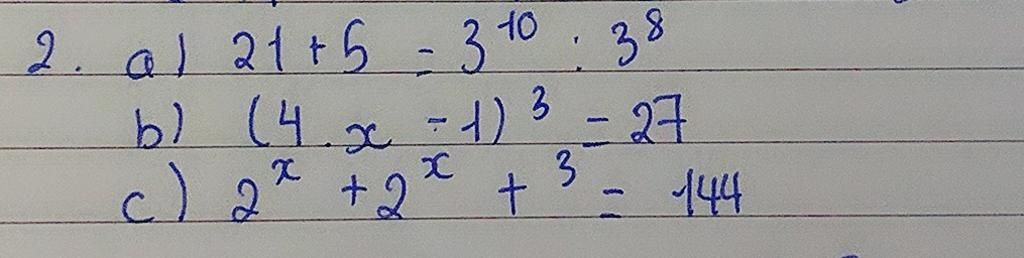 2. a) 21 + 5 = 3^10 : 3^8
b) (4 . x - 1)^3 = 27
c) 2^x + 2^x + ^3 = 144